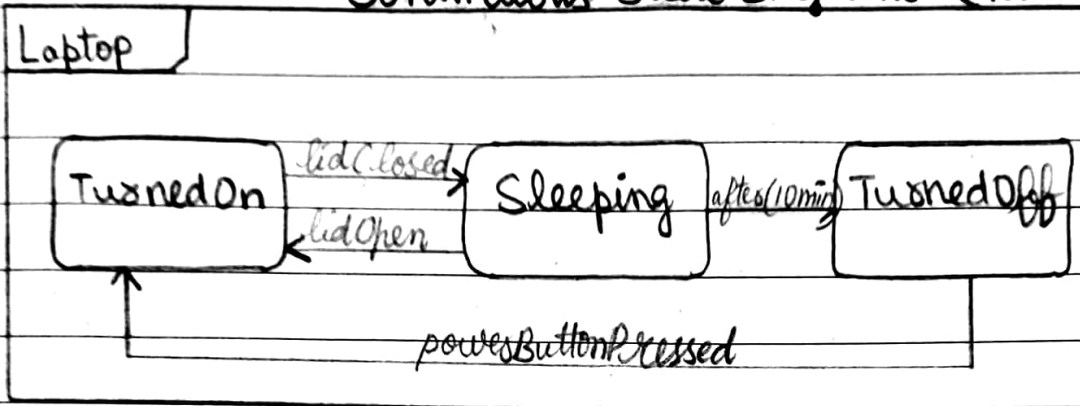 Laptop
TurnedOn
lidClosed
lidOpen
Sleeping
after(10min)
TurnedOff
powerButtonPressed